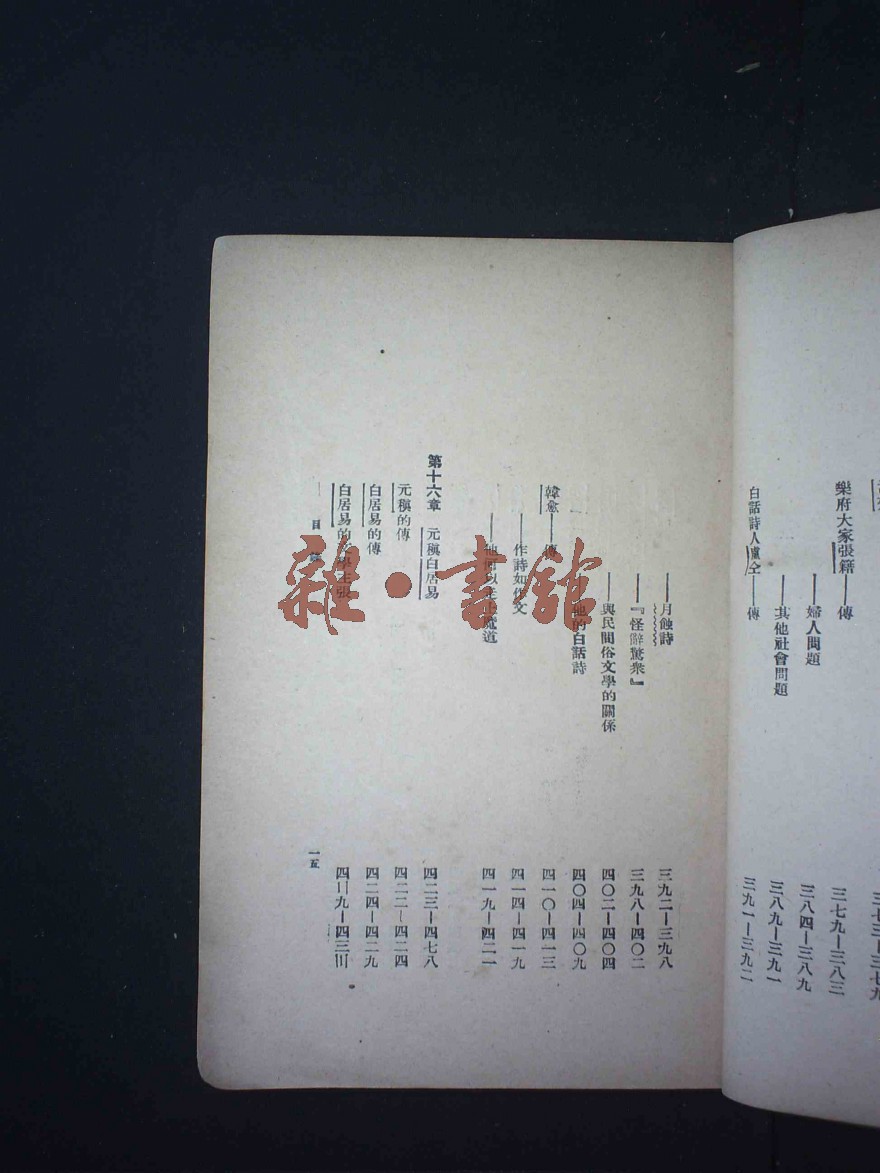 三七三—三七九
樂府大家張籍——傳 三七九—三八三
——婦人問題 三八四—三八九
——其他社會問題 三八九—三九一
白話詩人盧仝——傳 三九一—三九二
——月蝕詩 三九二—三九八
——『怪辭驚衆』 三九八—四〇二
——與民間俗文學的關係 四〇二—四〇四
——他的白話詩 四〇四—四〇九
韓愈——傳 四一〇—四一三
——作詩如作文 四一四—四一九
——他何以走上魔道 四一九—四二一
第十六章 元稹白居易 四二三—四七八
元稹的傳 四二二—四二四
白居易的傳 四二四—四二九
白居易的文學主張
目錄
一五
雜·書館